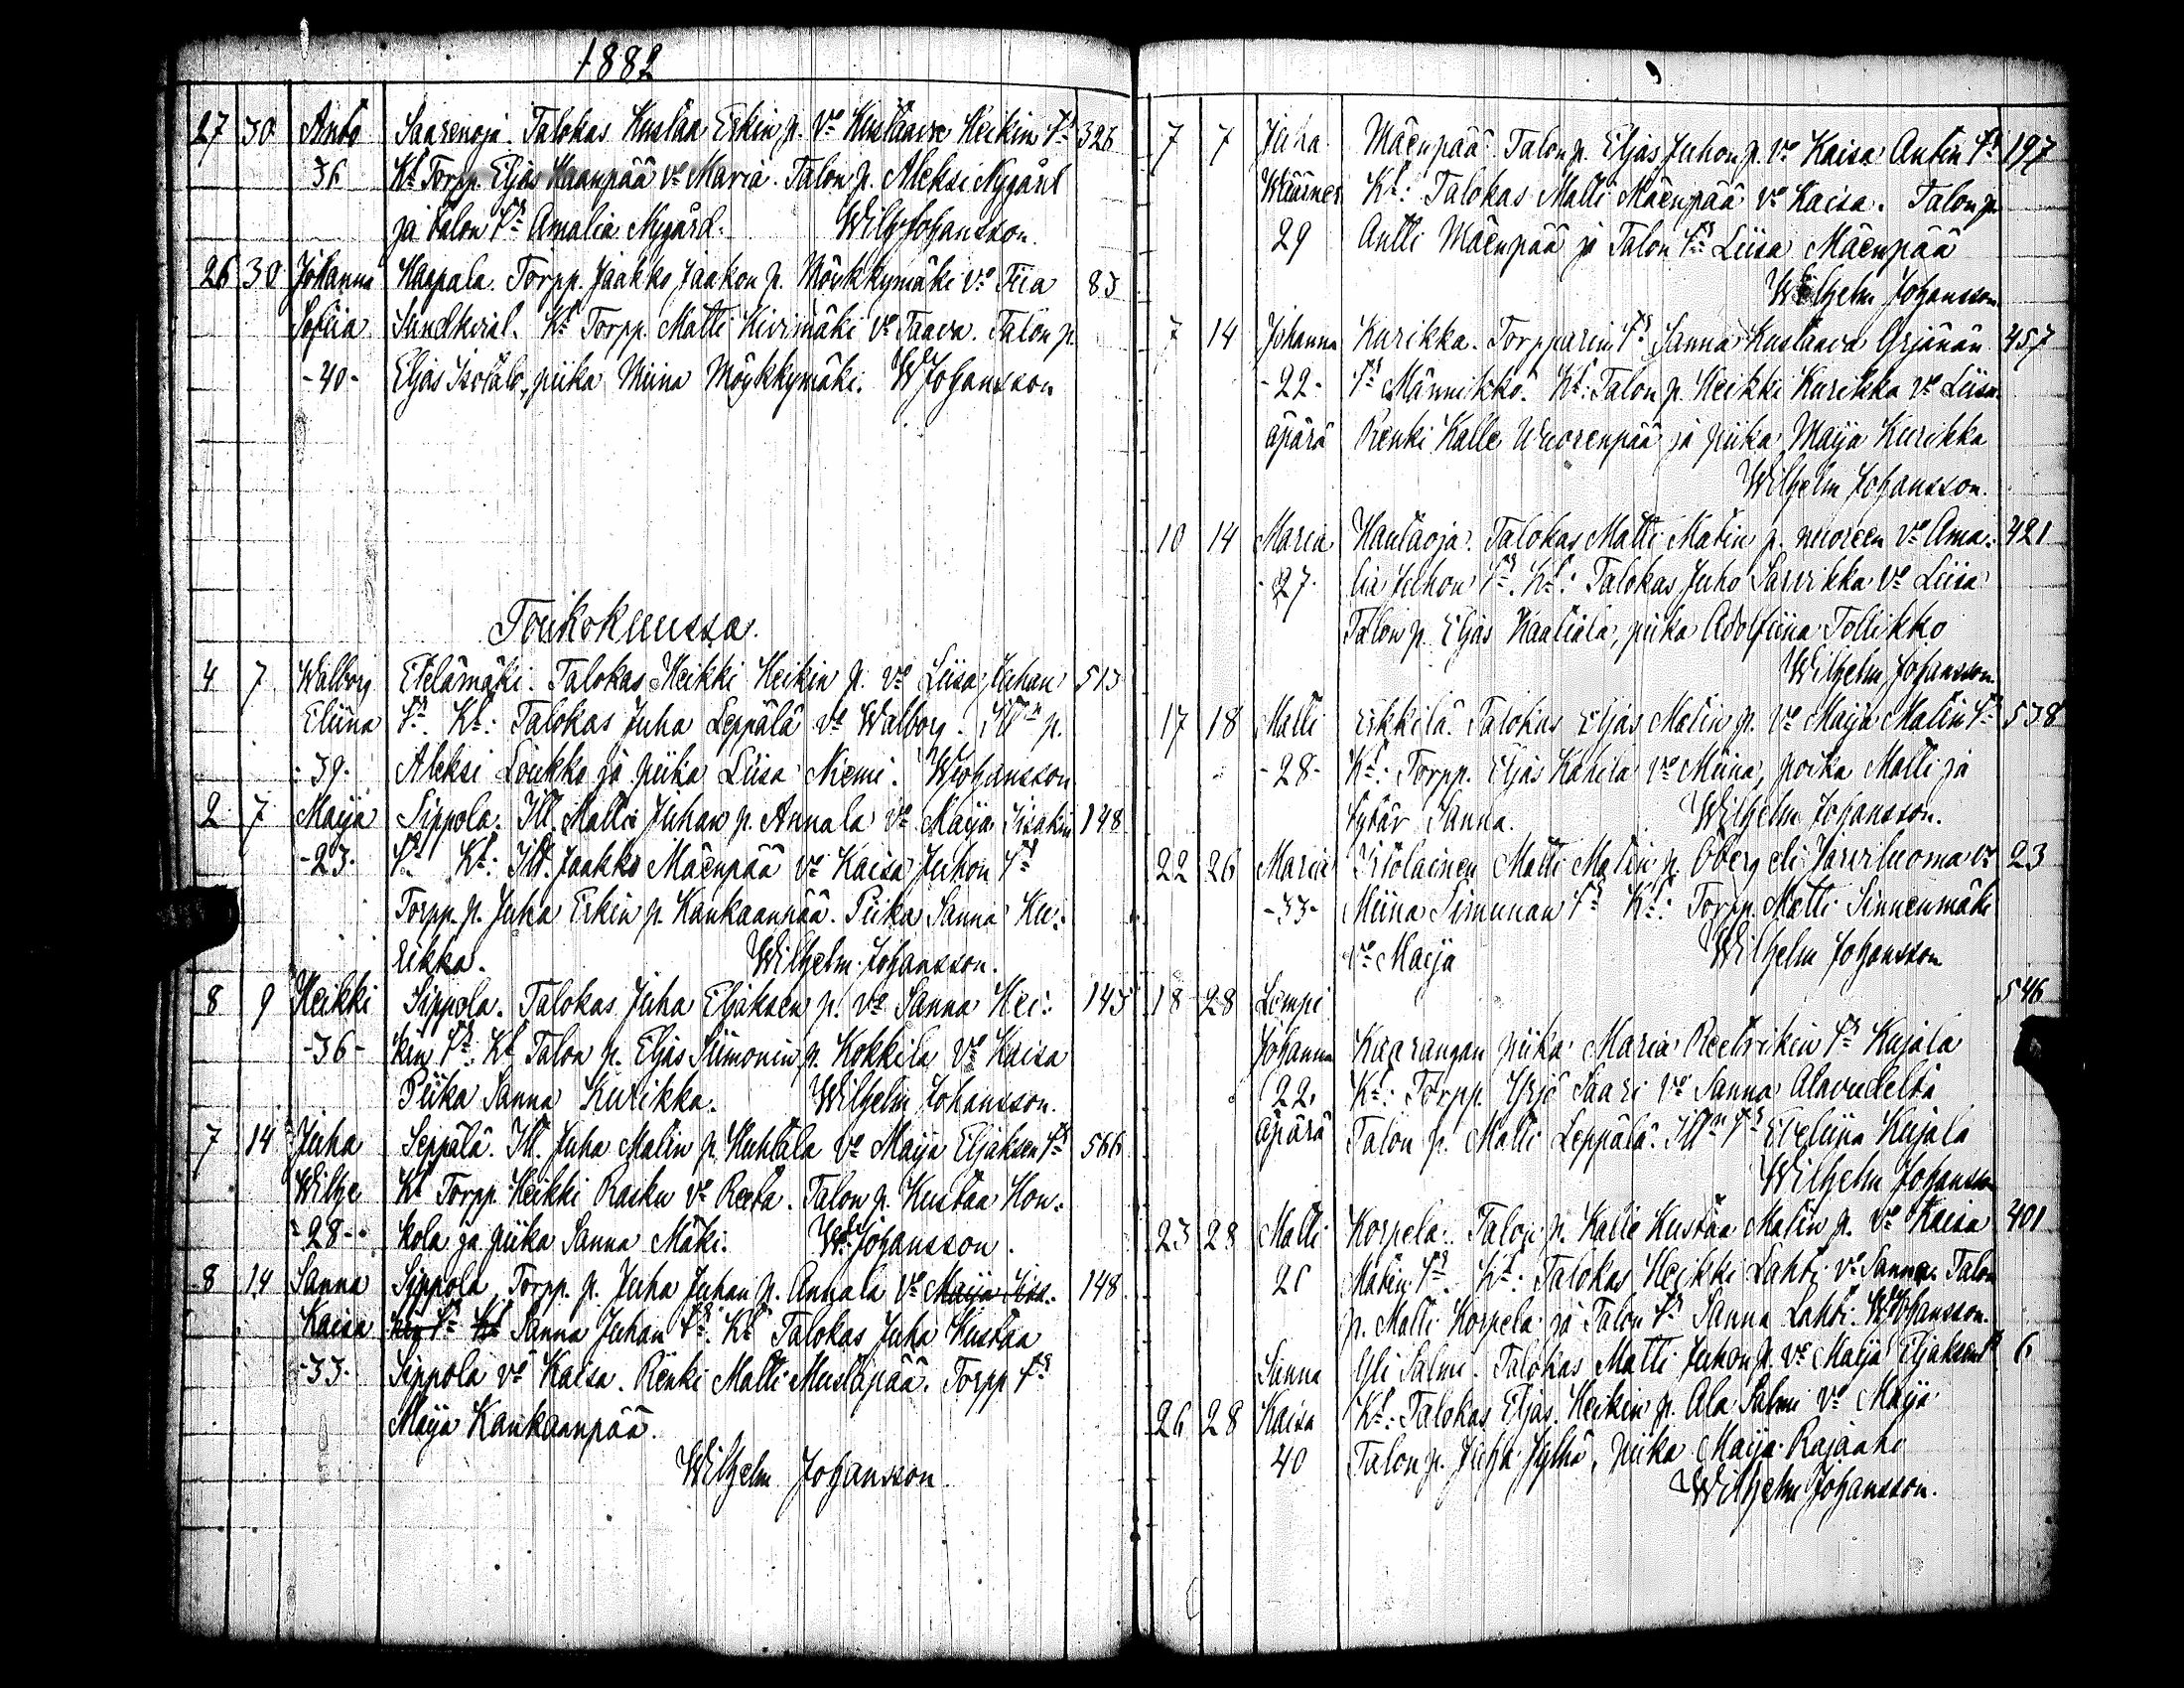 1882
27 30 Anto Saarenoja. Talokas Kustaa Erkin p. Vo Kustaava Heikin tr 326
36 Kt Torpp. Eljas Haanpää vo Maria. Talon p. Aleksi Nygård
ja talon tr Amalia Nygård. Wilh Johansson.
26 30 Johanna Haapala. Torpp. Jaakko Jaakon p. Möykkymäki vo Fiia 83
Sofiia Sundkvist. Kt Torpp. Matti Kivimäki vo Taava. Talon p.
-40- Eljas Isotalo, piika Miina Möykkymäki. W Johansson
Toukokuussa.
4 7 Walborg Etelämäki. Talokas Heikki Heikin p. vo Liisa Juhan 513
Eliina tr. Kt: Talokas Juha Leppälä vo Walborg. Itn p.
-39- Aleksi Loukko ja piika Liisa Niemi. W Johansson
2 7 Maija Sippola. Itl. Matti Juhan p. Annala vo Maija Iisakin 148
-23- tr Kt: Itl. Jaakko Mäenpää vo Kaisa Juhon tr
Torpp. p. Juha Erkin p. Kankaanpää. Piika Sanna Ku-
rikka. Wilhelm Johansson.
8 9 Heikki Sippola. Talokas Juha Eljaksen p. vo Sanna Hei- 143
-36- kin tr. Kt Talon p. Eljas Siimonin p. Kokkila vo Kaisa
Piika Sanna Kurikka. Wilhelm Johansson.
7 14 Juha Seppälä. Itl. Juha Matin p. Huhtala vo Maija Eljaksen tr 566
Wilhe Kt Torpp. Heikki Rasku vo Reeta. Talon p. Kustaa Hon-
-28- kola ja piika Sanna Mäki. W. Johansson.
8 14 Sanna Sippola, Torpp. p. Juha Juhan p. Annala vo Maija Iisa- 148
Kaisa kin tr Kt Sanna Juhan tr. Kt Talokas Juha Kustaa
-33- Sippola vo Kaisa. Renki Matti Mustapää. Torpp tr
Maija Kankaanpää.
Wilhelm Johansson.
7 7 Juha Mäenpää. Talon p. Eljas Juhon p. vo Kaisa Antin tr 197
Wäärner Kt: Talokas Matti Mäenpää vo Kaisa. Talon p.
29 Antti Mäenpää ja Talon tr Liisa Mäenpää
Wilhelm Johansson
7 14 Johanna Kurikka. Torpparin tr Sanna Kustaava Yrjänän 457
-22- tr Männikkö. Kt: Talon p. Heikki Kurikka vo Liisa.
äpärä Renki Kalle Wuorenpää ja piika Maija Kurikka
Wilhelm Johansson.
10 14 Maria Hautaoja. Talokas Matti Matin p. nuoreen vo Ama- 421
-27- lia Juhon tr. Kt: Talokas Juho Sarvikka vo Liisa
Talon p. Eljas Kaatiala, piika Adolfiina Tollikko
Wilhelm Johansson.
17 18 Matti Erkkilä. Talokas Eljas Matin p. vo Maija Matin tr 538
-28- Kt: Torpp. Eljas Kahila vo Miina, poika Matti ja
tytär Sanna. Wilhelm Johansson.
22 26 Maria Itlolainen Matti Matin p. Öberg eli Jarviluoma vo 23
-33- Miina Simunan tr Kt: Torpp. Matti Sinnenmäki
vo Maija Wilhelm Johansson
18 28 Lempi 546
Johanna Kaarangan piika Maria Reetrikin tr Kujala
22. Kt: Torpp. Yrjö Saari vo Sanna Alavudelta
äpärä Talon p. Matti Leppälä. Itn tr Eveliina Kujala
Wilhelm Johansson
23 28 Matti Korpela. Talon p. Kalle Kustaa Matin p. vo Kaisa 401
21 Matin tr. Kt: Talokas Heikki Lahti vo Sanna. Talon
p. Matti Korpela ja Talon tr Sanna Lahti. W Johansson.
Sanna Yli Salmi. Talokas Matti Juhon p. vo Maija Eljaksen tr 6
26 28 Kaisa Kt: Talokas Eljas Heikin p. Ala Salmi vo Maija
40 Talon p. Juha Jylhä, piika Maija Rajaaho
Wilhelm Johansson.